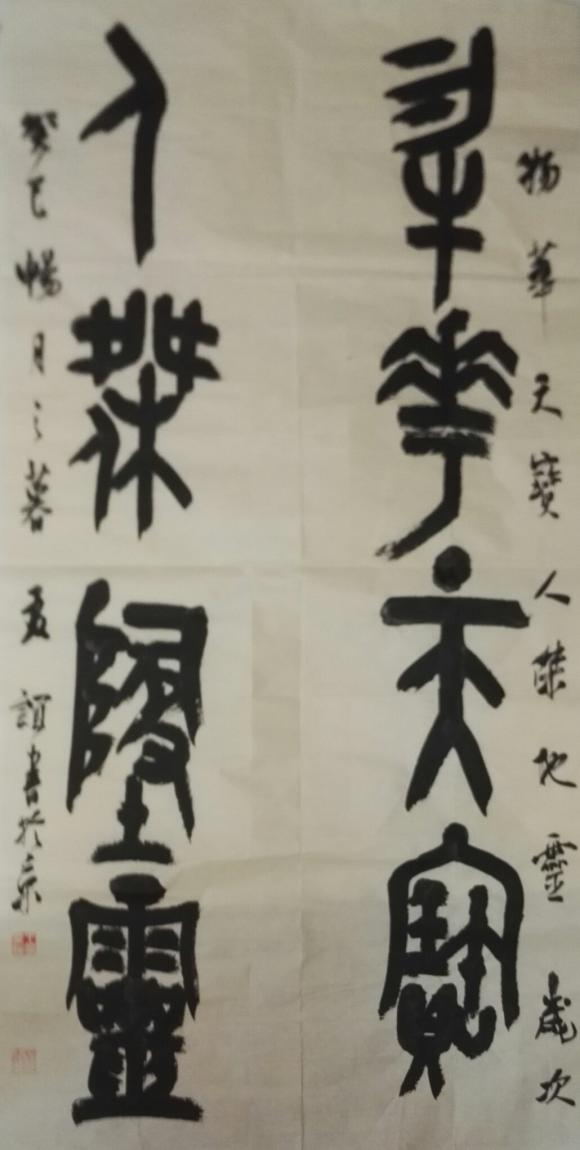 物華天寶人傑地靈 歲次
物華天寶
人傑地靈
癸巳暢月之暮 誼書於京